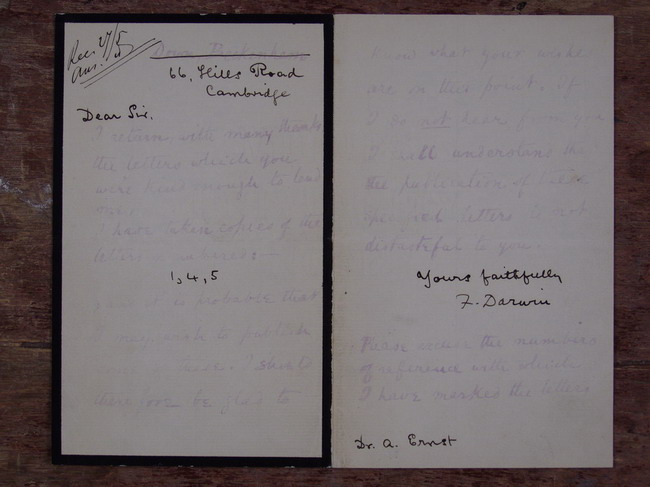 Rec. 27/5
Ans.
Down Beckenham
66, Hills Road
Cambridge
Dear Sir,
I return with many thanks
the letters which you
were kind enough to lend
me.
I have taken copies of the
letters
1, 4, 5
and it is probable that
I may wish to publish
should
therefore be glad to
know what your wishes
are on this point. If
I do not hear from you
I shall understand that
the publication of these
special letters is not
distasteful to you.
Yours faithfully
F. Darwin
Please excuse the numbers
of reference with which
I have marked the letters
Dr. A. Ernst